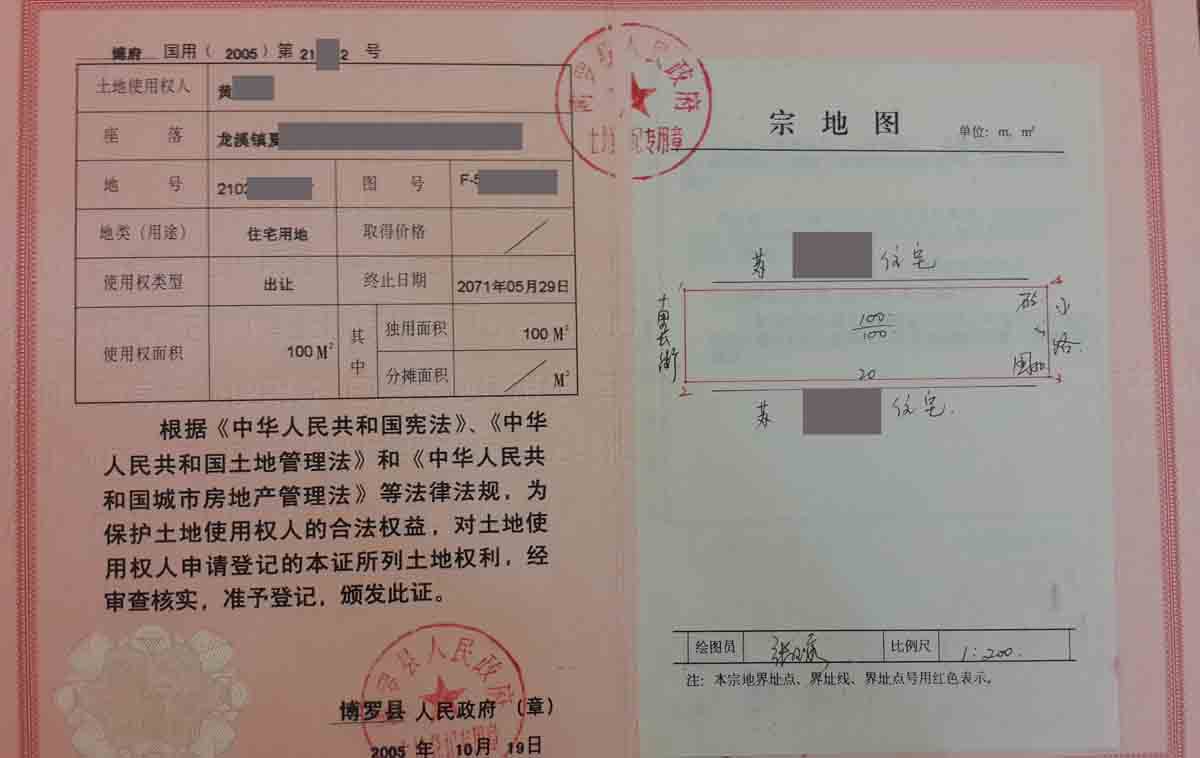 博府 国用（2005）第21 2 号
土地使用权人 黄
座 落 龙溪镇夏
地 号 2103 图 号 F-5
地类（用途） 住宅用地 取得价格
使用权类型 出让 终止日期 2071年05月29日
使用权面积 100 M² 其中 独用面积 100 M²
分摊面积 M²
根据《中华人民共和国宪法》、《中华
人民共和国土地管理法》和《中华人民共
和国城市房地产管理法》等法律法规，为
保护土地使用权人的合法权益，对土地使
用权人申请登记的本证所列土地权利，经
审查核实，准予登记，颁发此证。
博罗县人民政府
博罗县 人民政府（章）
2005 年 10 月 19 日
博罗县人民政府
土地登记专用章
宗地图
单位：m，m²
苏 住宅
1
4
100
100
小路
20
2
3
苏 住宅
绘图员 比例尺 1:200
注：本宗地界址点、界址线、界址点号用红色表示。